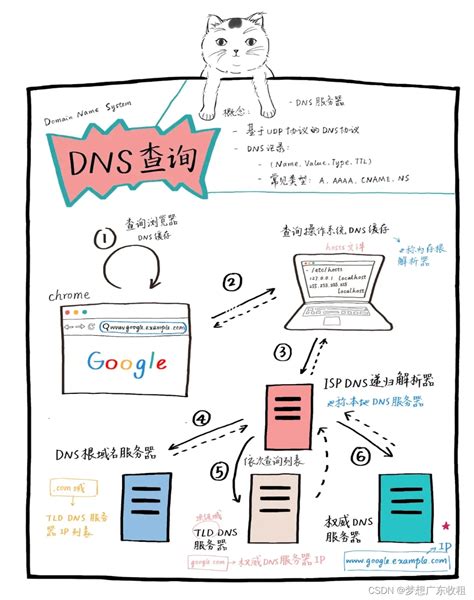 Domain Name System
DNS查询
概念:
- DNS服务器
- 基于UDP协议的DNS协议
- DNS记录:
- (Name, Value, Type, TTL)
- 常见类型: A, AAAA, CNAME, NS
①
查询浏览器
DNS缓存
chrome
www.google.example.com
Google
②
查询操作系统DNS缓存
hosts文件
*称为存根
解析器
- /etc/hosts
127.0.0.1 localhost
255.255.255.255
localhost
③
ISP DNS递归解析器
*称本地DNS服务器
④
DNS根域名服务器
.com域
TLD DNS服务
器IP列表
⑤
依次查询列表
顶级域
TLD DNS
服务器
google.com
权威DNS服务器IP
⑥
权威DNS
服务器
IP
www.google.example.com
CSDN @梦想广东收租